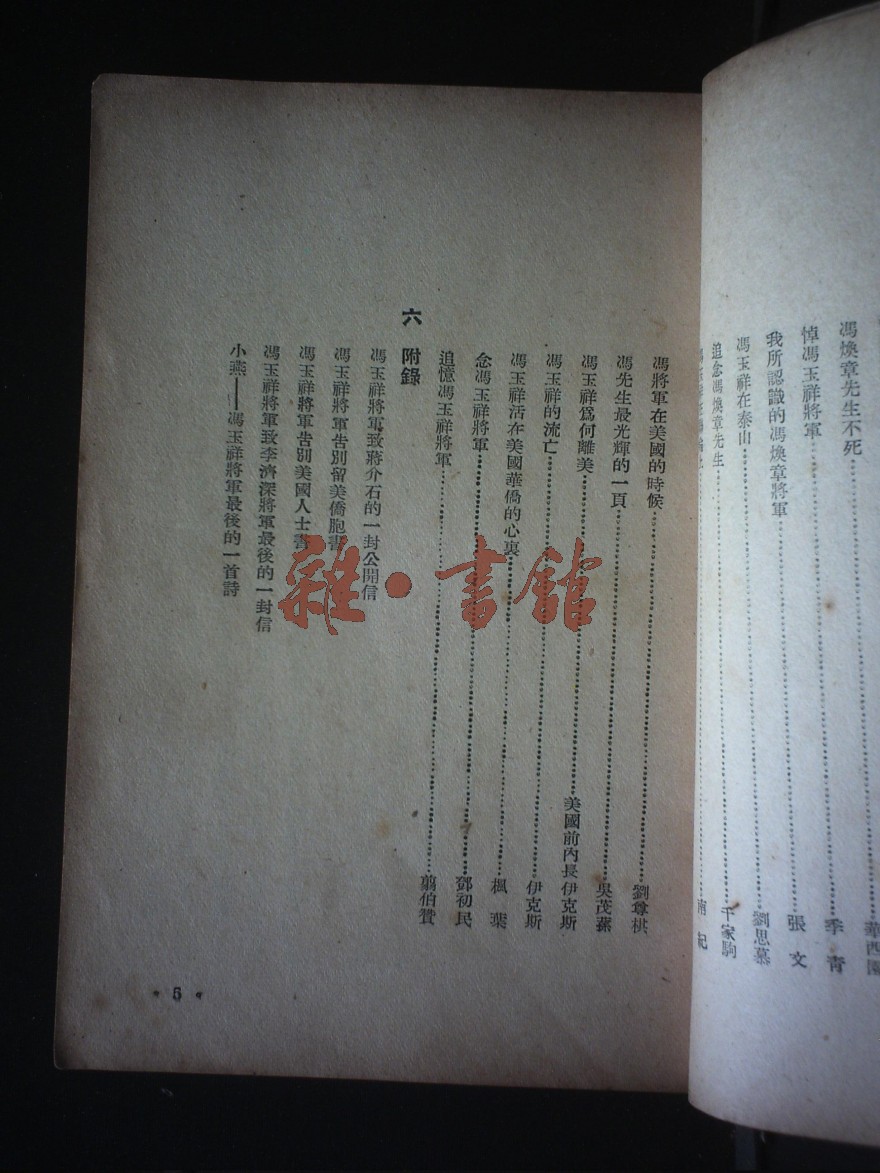 馮煥章先生不死
悼馮玉祥將軍 季青
我所認識的馮煥章將軍 張文
馮玉祥在泰山 劉思慕
追念馮煥章先生 千家駒
馮將軍在美國的時候 劉尊棋
馮先生最光輝的一頁 吳茂蓀
馮玉祥爲何離美 美國前內長伊克斯
馮玉祥的流亡 伊克斯
馮玉祥活在美國華僑的心裏 楓葉
念馮玉祥將軍 鄧初民
追憶馮玉祥將軍 翦伯贊
六 附錄
馮玉祥將軍致蔣介石的一封公開信
馮玉祥將軍告別留美僑胞書
馮玉祥將軍告別美國人士書
馮玉祥將軍致李濟深將軍最後的一封信
小燕——馮玉祥將軍最後的一首詩
• 5 •
雜·書館